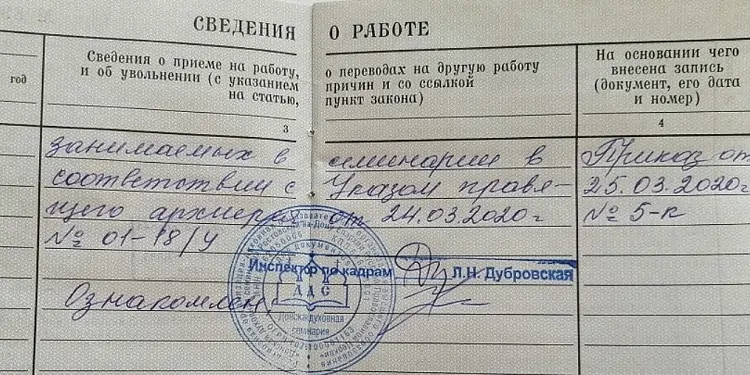 СВЕДЕНИЯ О РАБОТЕ
год
Сведения о приеме на работу,
и об увольнении (с указанием
на статью,
о переводах на другую работу
причин и со ссылкой
пункт закона)
На основании чего
внесена запись
(документ, его дата
и номер)
3
4
занимаемых в семинарии в
соответствии с Указом правя-
щего архиерея от 24.03.2020г
№ 01-18/У
Приказ от
25.03.2020г
№ 5-к
Инспектор по кадрам Л.Н. Дубровская
Ознакомлен
ДДС
Донская духовная
семинария